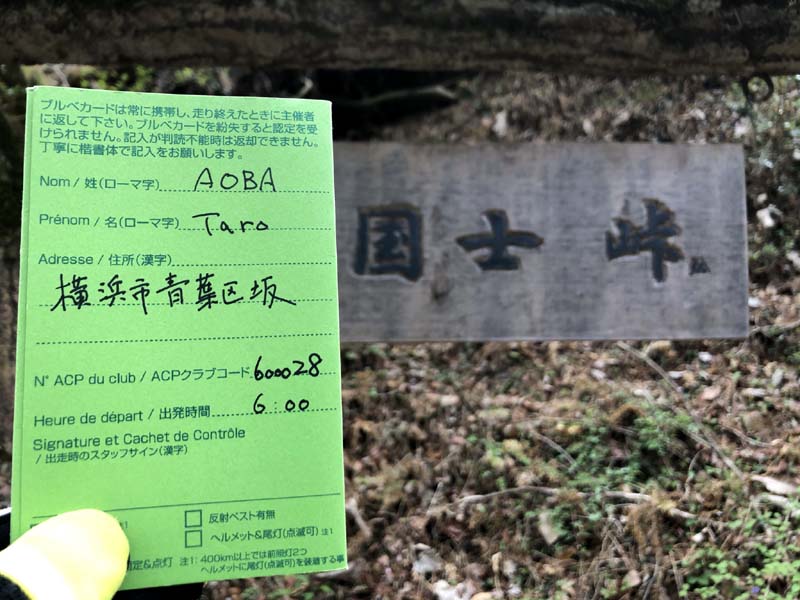 ブルベカードは常に携帯し、走り終えたときに主催者
に返して下さい。ブルベカードを紛失すると認定を受
けられません。記入が判読不能時は返却できません。
丁寧に楷書体で記入をお願いします。
Nom / 姓(ローマ字) AOBA
Prénom / 名(ローマ字) Taro
Adresse / 住所(漢字)
横浜市青葉区坂
N° ACP du club / ACPクラブコード 600028
Heure de départ / 出発時間 6:00
Signature et Cachet de Contrôle
/ 出走時のスタッフサイン(漢字)
反射ベスト有無
ヘルメット&尾灯(点滅可) 注1
定&点灯 注1: 400km以上では前照灯2つ
ヘルメットに尾灯(点滅可)を装着する事
国士峠